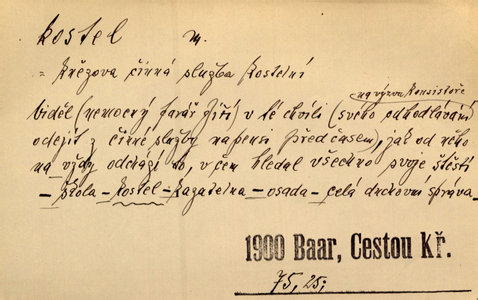 kostel m.
= Knězova činná služba kostelní
na výzvu konsistoře
viděl (nemocný farář Jiří) v té chvíli (svého odhodlávání
odejít z činné služby na pensi předčasem), jak od něho
na vždy odchází to, v čem hledal všechno svoje štěstí
– škola – kostel – kazatelna – osada – celá duchovní správa
1900 Baar, Cestou Kř.
75, 25;